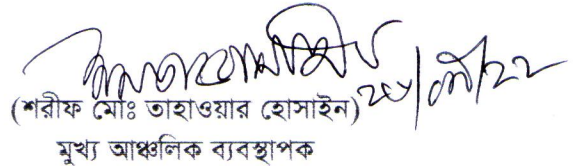 (শরীফ মোঃ তাহাওয়ার হোসাইন)
মুখ্য আঞ্চলিক ব্যবস্থাপক